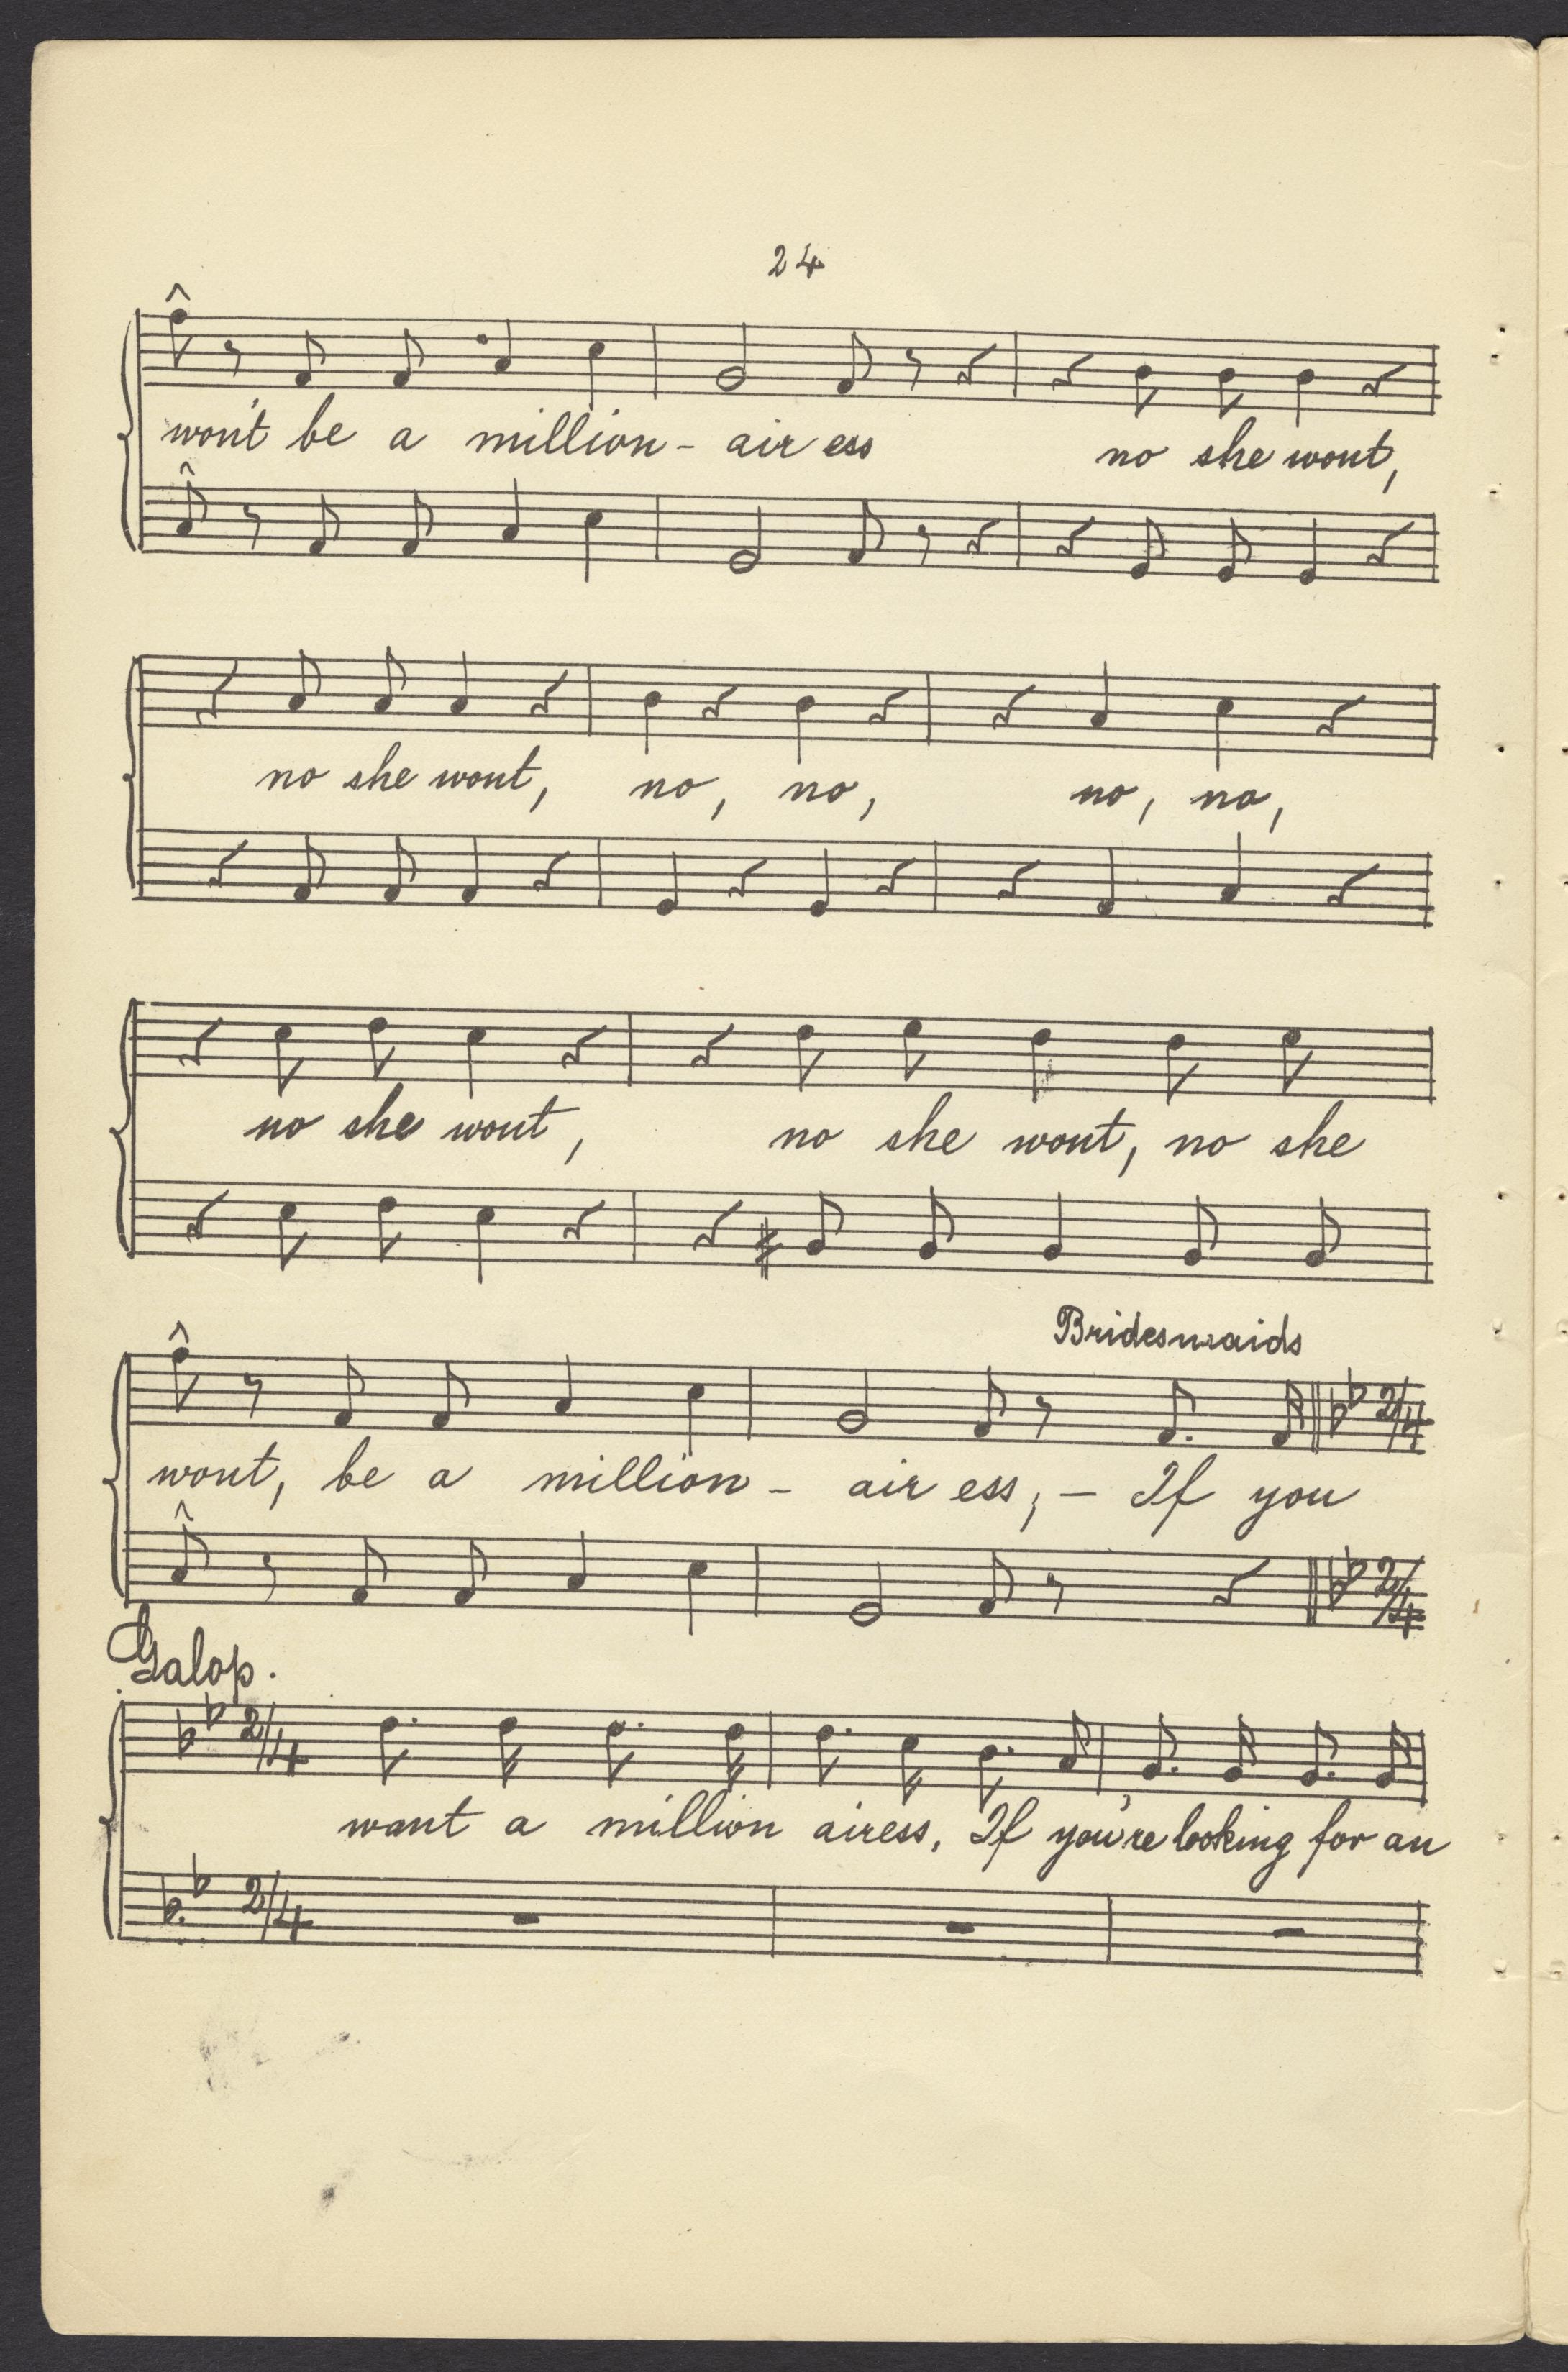 24
won't be a million - air ess no she wont,
no she wont, no, no, no, no,
no she wont, no she wont, no she
Bridesmaids
wont, be a million - air ess, - If you
2/4
2/4
Galop.
2/4
want a million airess, If you're looking for an
2/4